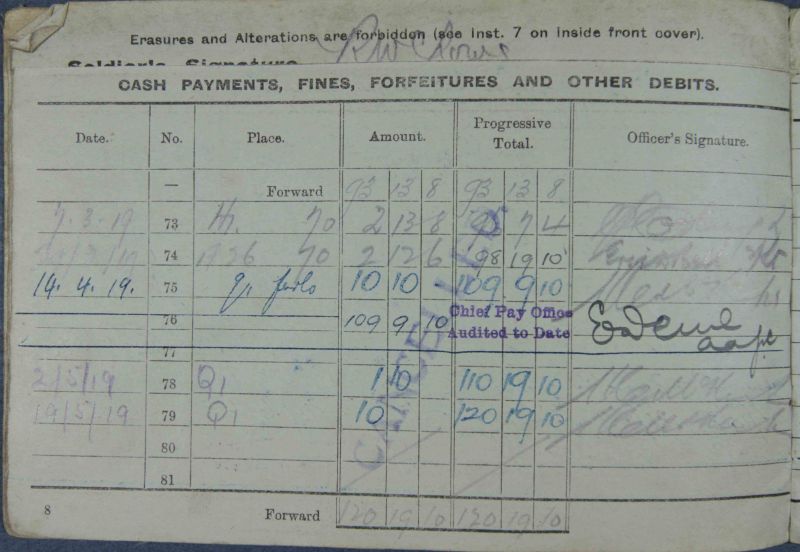 Erasures and Alterations are forbidden (see Inst. 7 on inside front cover).
Soldier's Signature
CASH PAYMENTS, FINES, FORFEITURES AND OTHER DEBITS.
Date. No. Place. Amount. Progressive Total. Officer's Signature.
— Forward 93 13 8 93 13 8
7.3.19 73 70 2 13 8 7 4
74 70 2 12 6 98 19 10
14.4.19. 75 10 10 109 9 10
76 109 9 10 Chief Pay Office
Audited to Date
77
2/5/19 78 Q1 1 10 110 19 10
19/5/19 79 Q1 10 120 19 10
80
81
CANCELLED
8 Forward 120 19 10 120 19 10